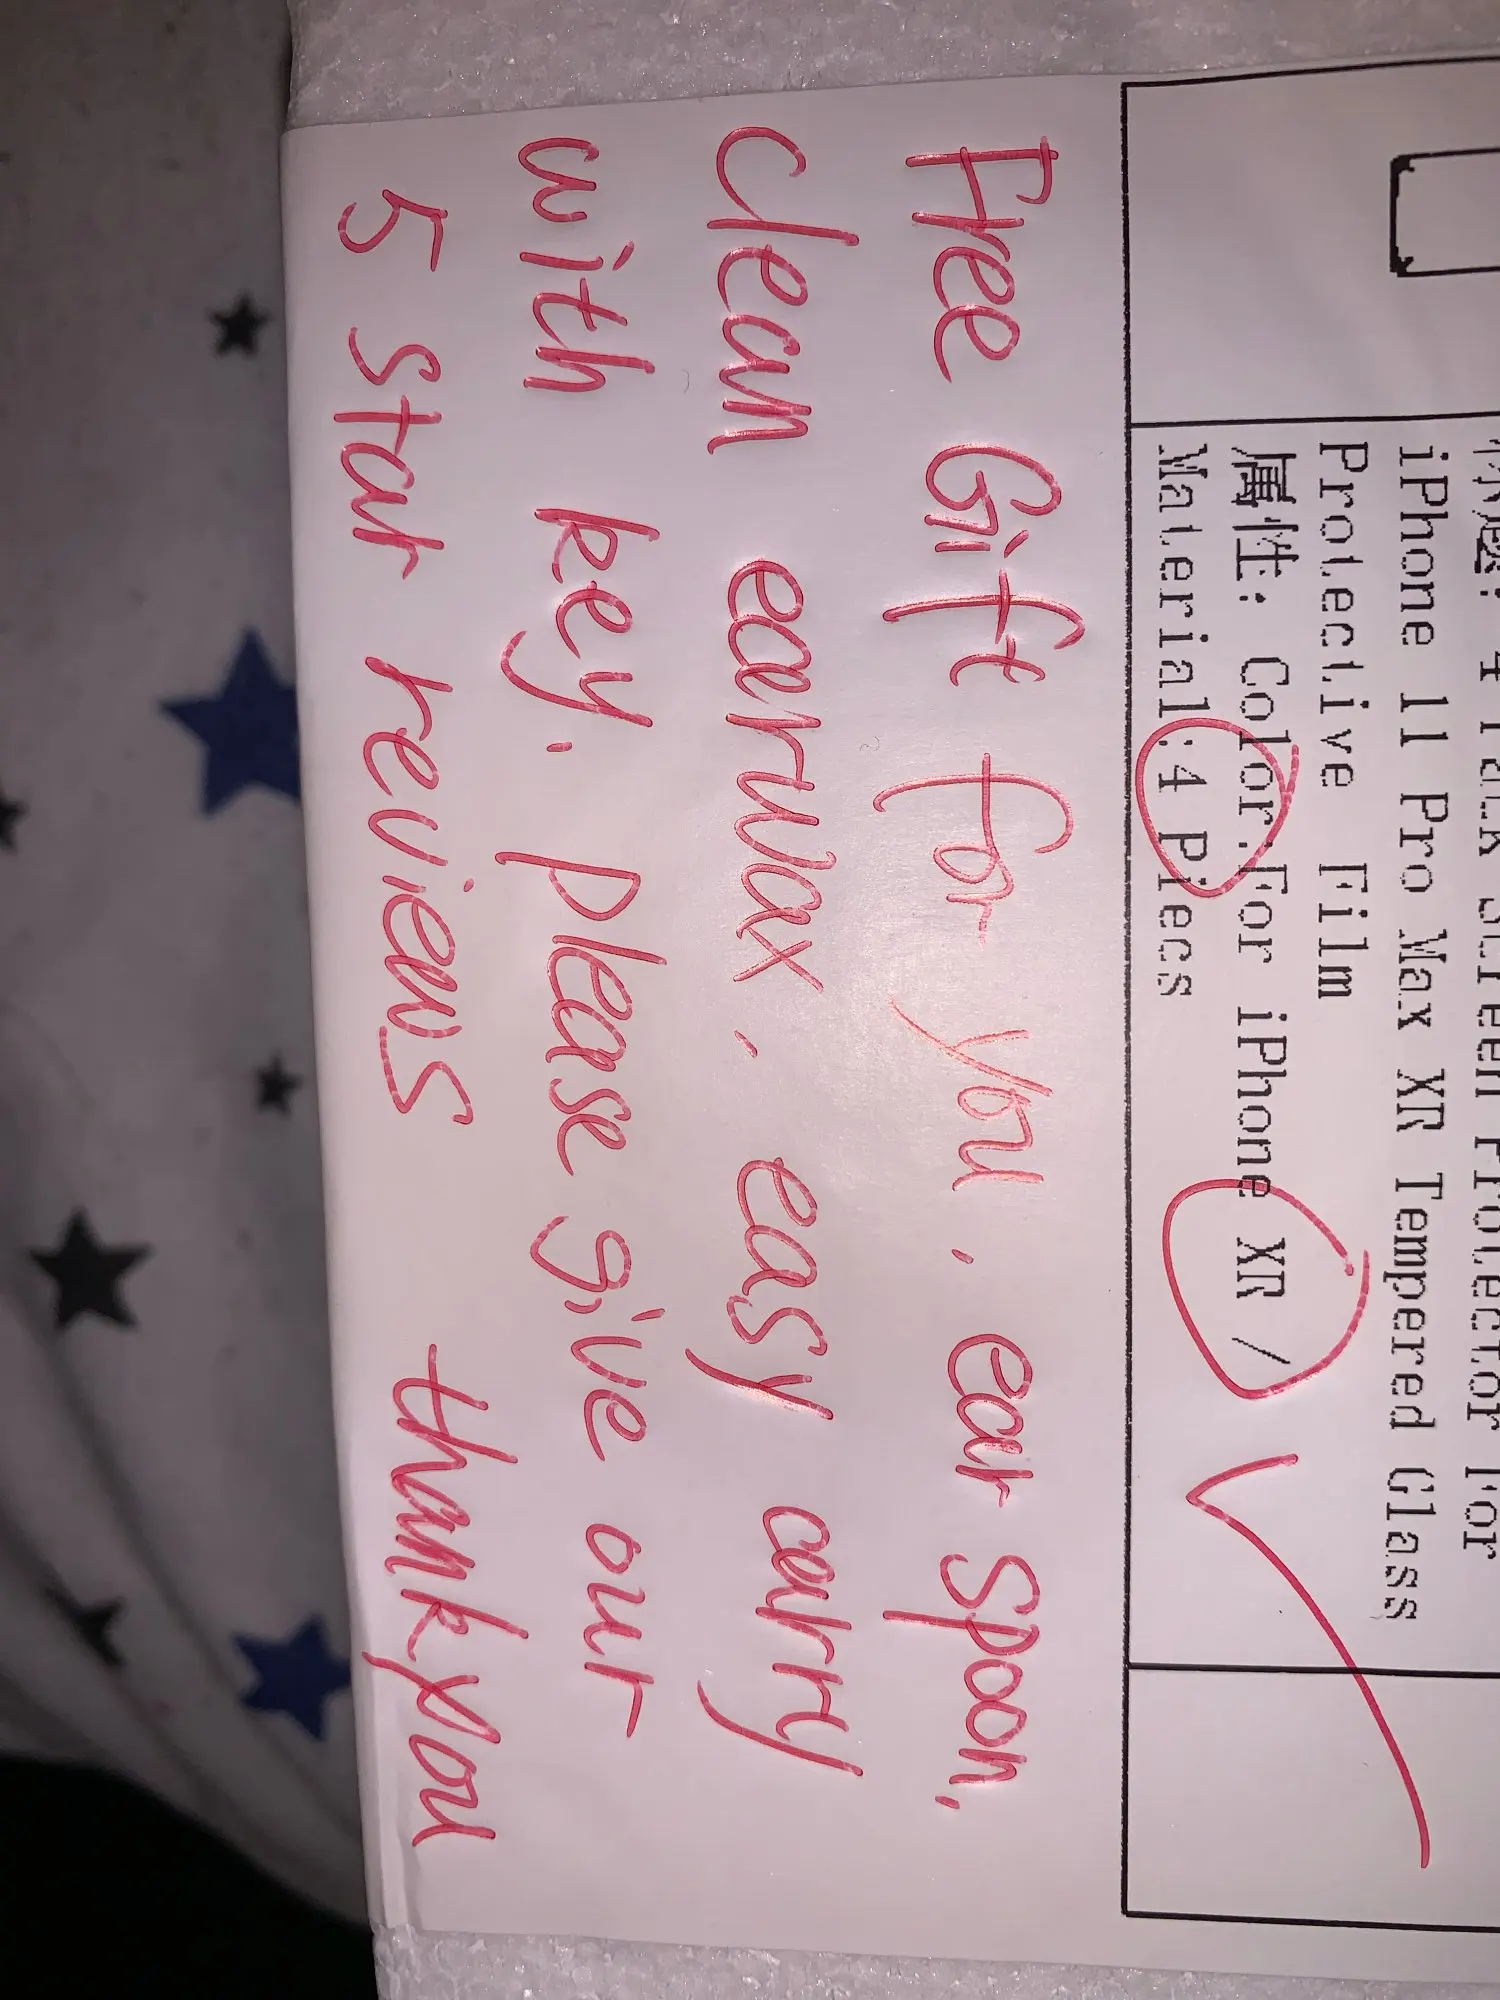 4 Pack Screen Protector For
iPhone 11 Pro Max XR Tempered Glass
Protective Film
属性: Color:For iPhone XR /
Material:4 Piecs
Free Gift for you, ear spoon,
clean earwax, easy carry
with key, please give our
5 star reviews thank you